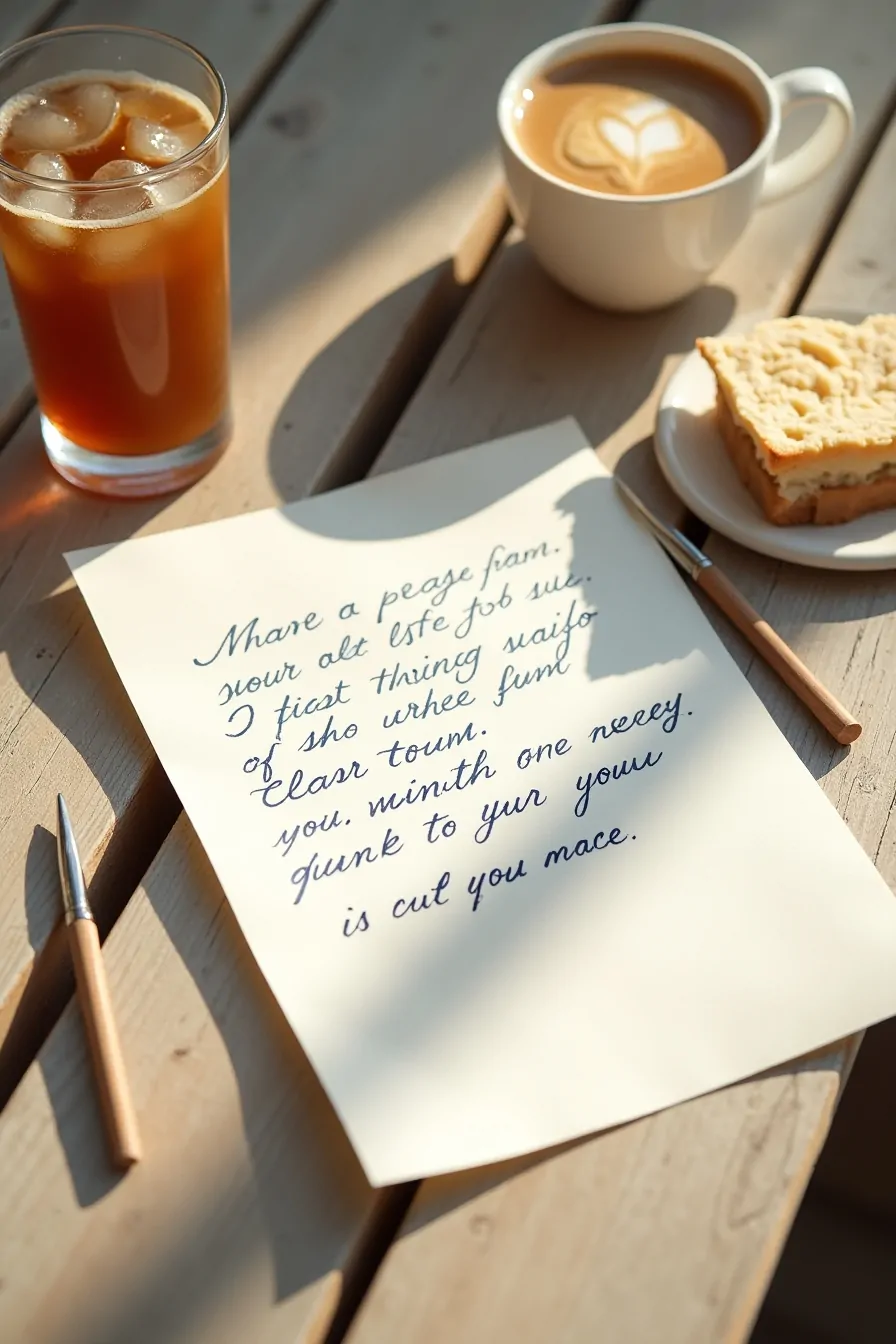 Mhare a pease fram.
your alt lste fob sue.
I ficst thring waifo
of sho urhee fum
Clasr toum.
you. minth one neeey.
qunnk to yur youu
is cut you mace.